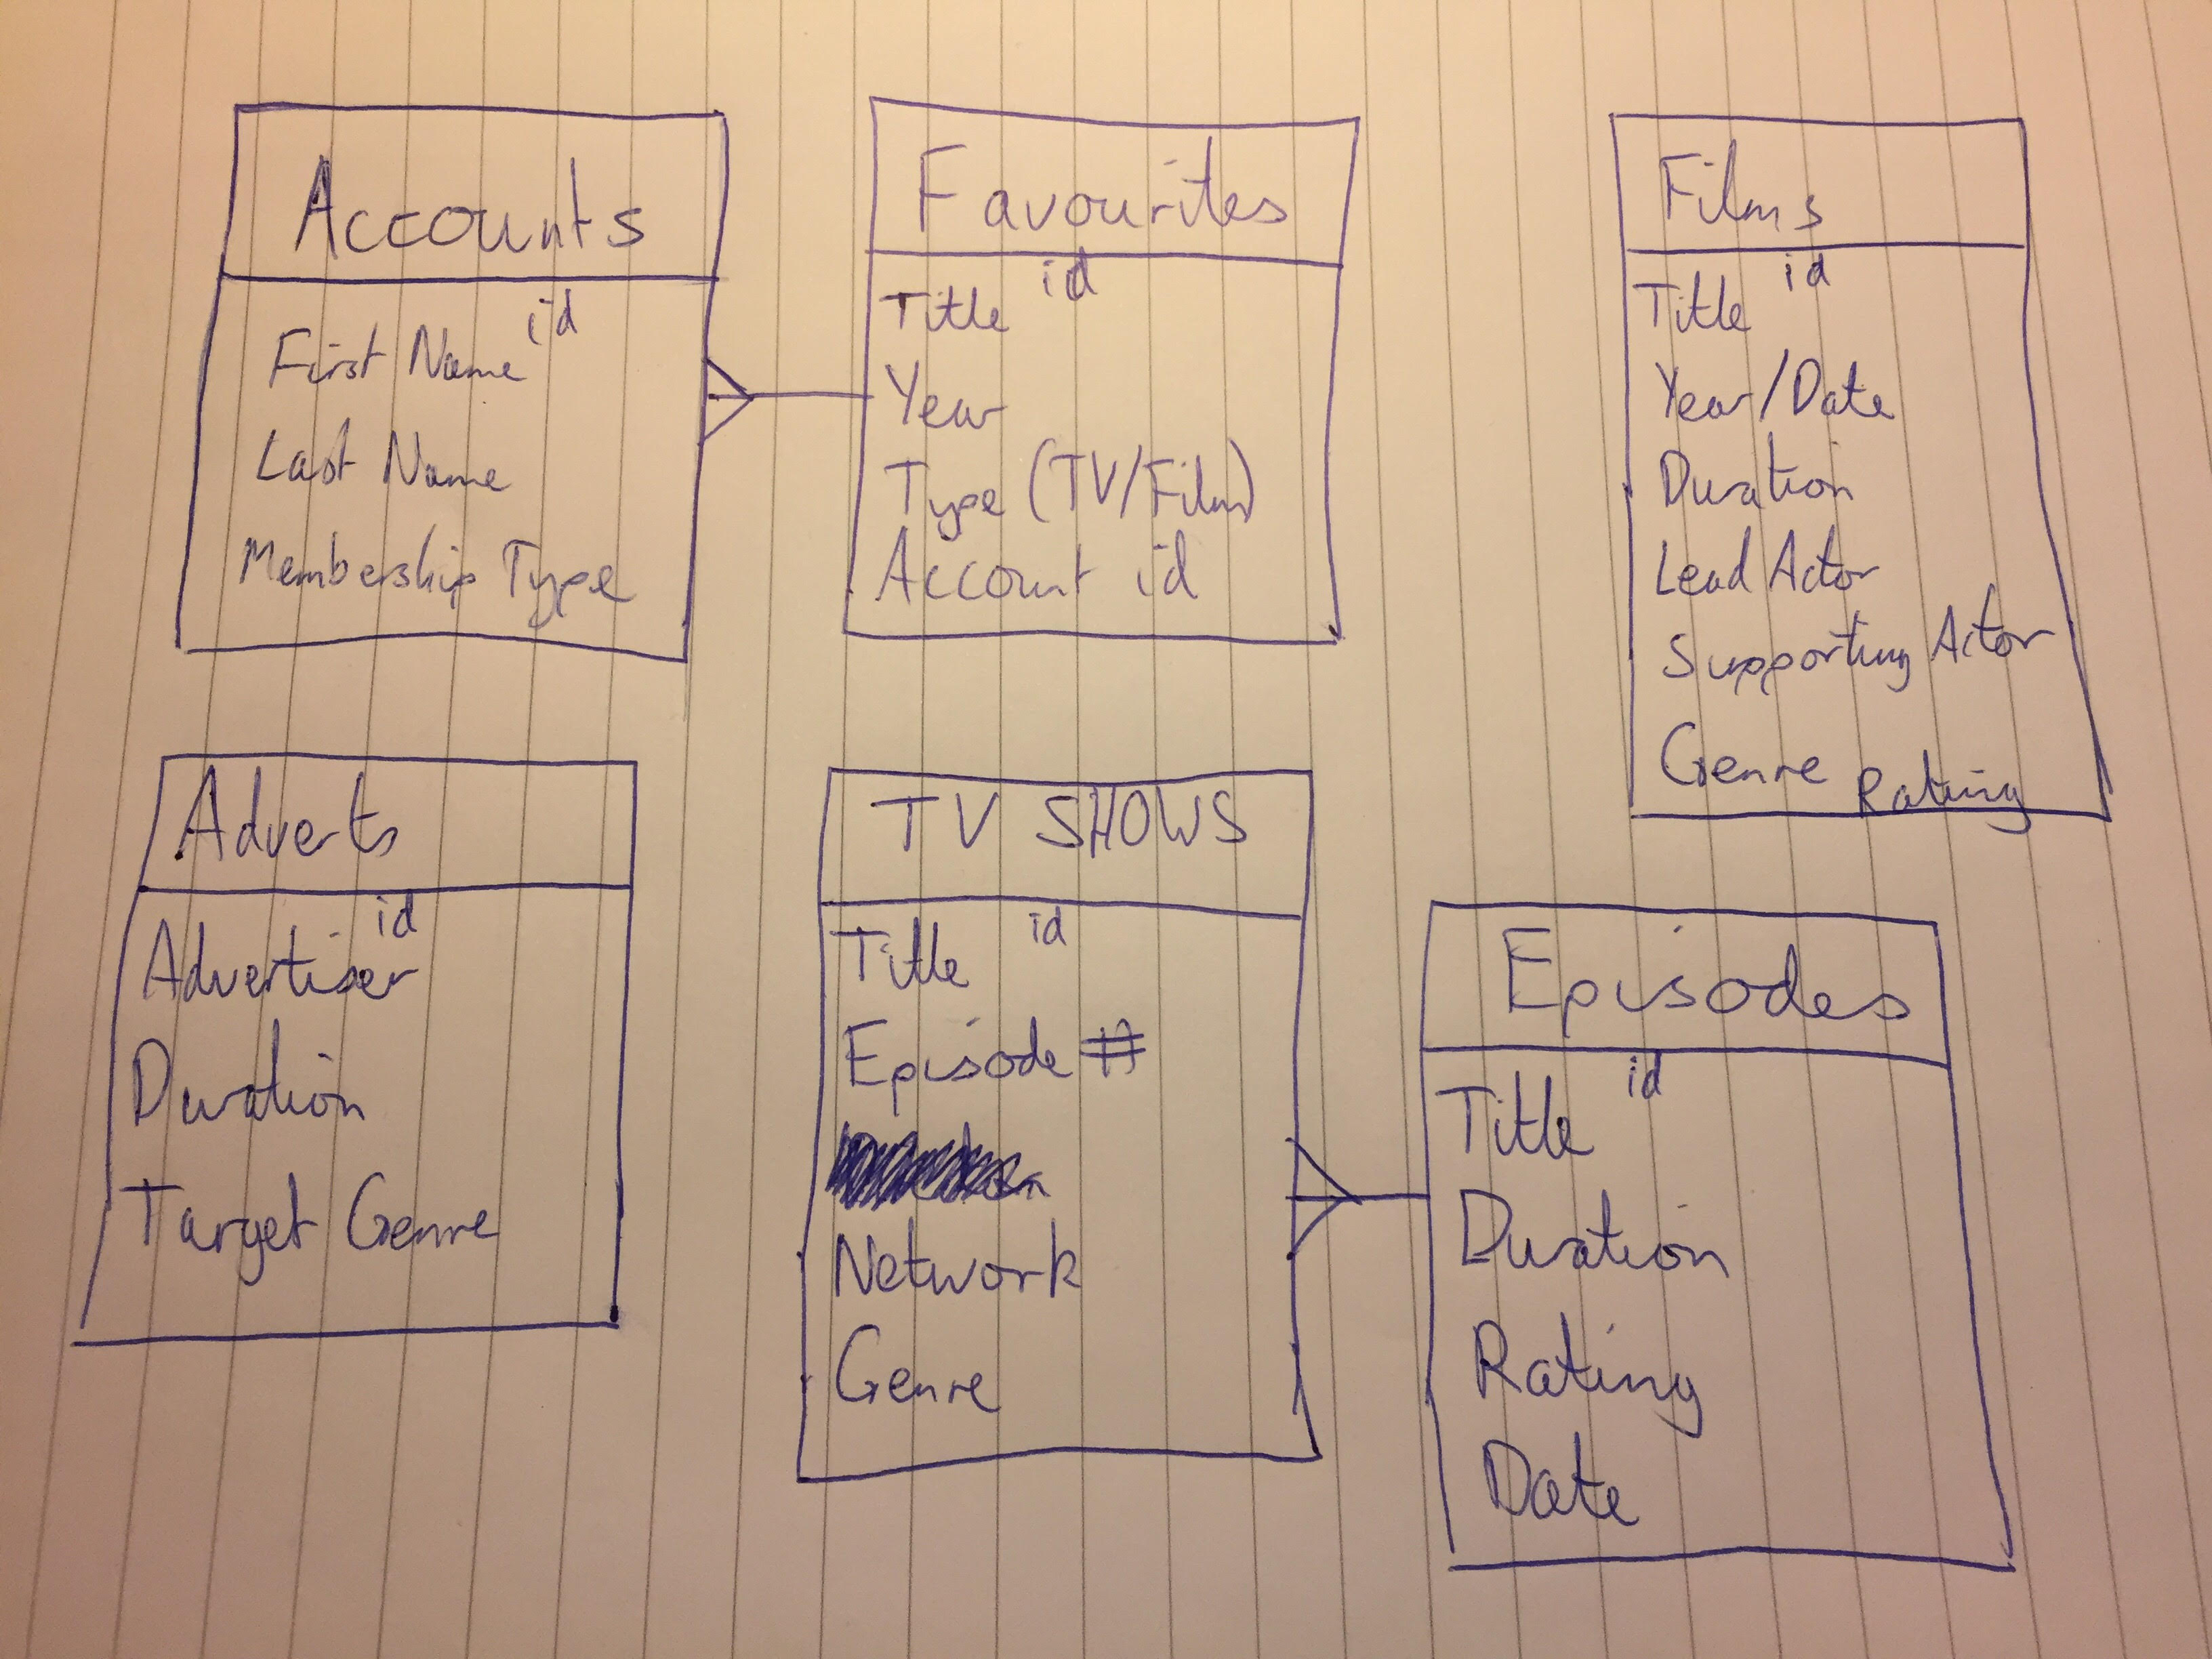 Accounts
id
First Name
Last Name
Membership Type
Favourites
id
Title
Year
Type (TV/Film)
Account id
Films
id
Title
Year/Date
Duration
Lead Actor
Supporting Actor
Genre Rating
Adverts
id
Advertiser
Duration
Target Genre
TV SHOWS
id
Title
Episode #
Network
Genre
Episodes
id
Title
Duration
Rating
Date